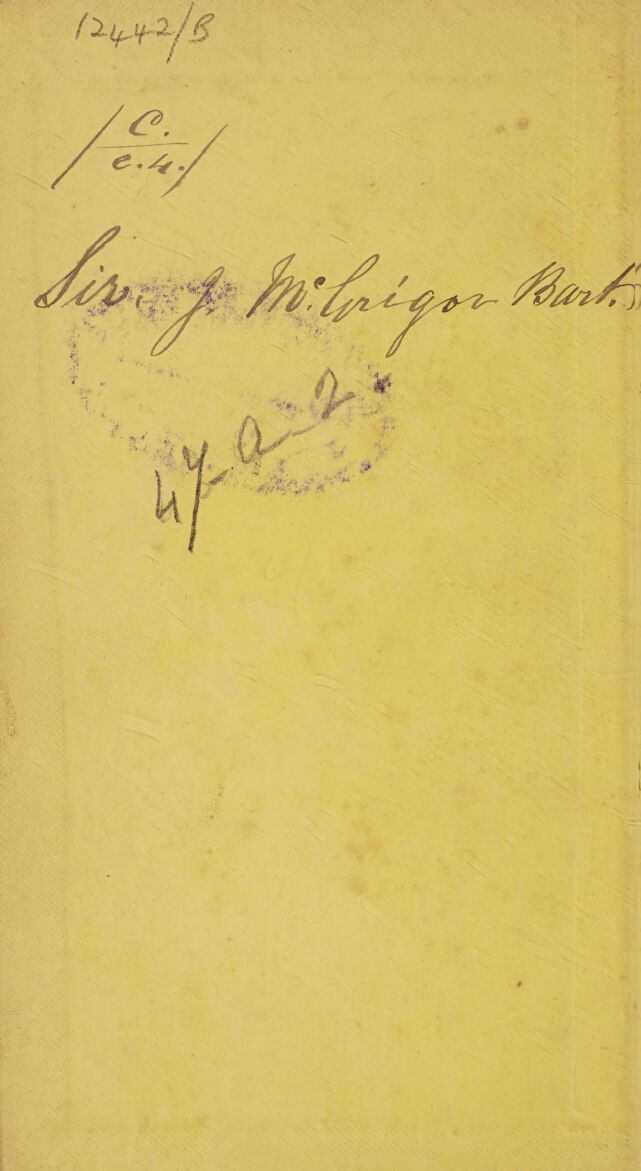 12442/B
/ C. /
e.4.
Sir. J. McGrigor Bart.